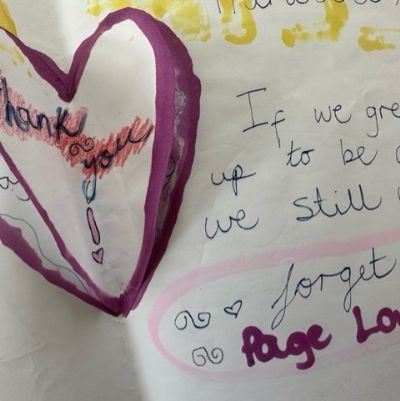 Thank
you
!
If we gre
up to be a
we still
forget
Page Lo